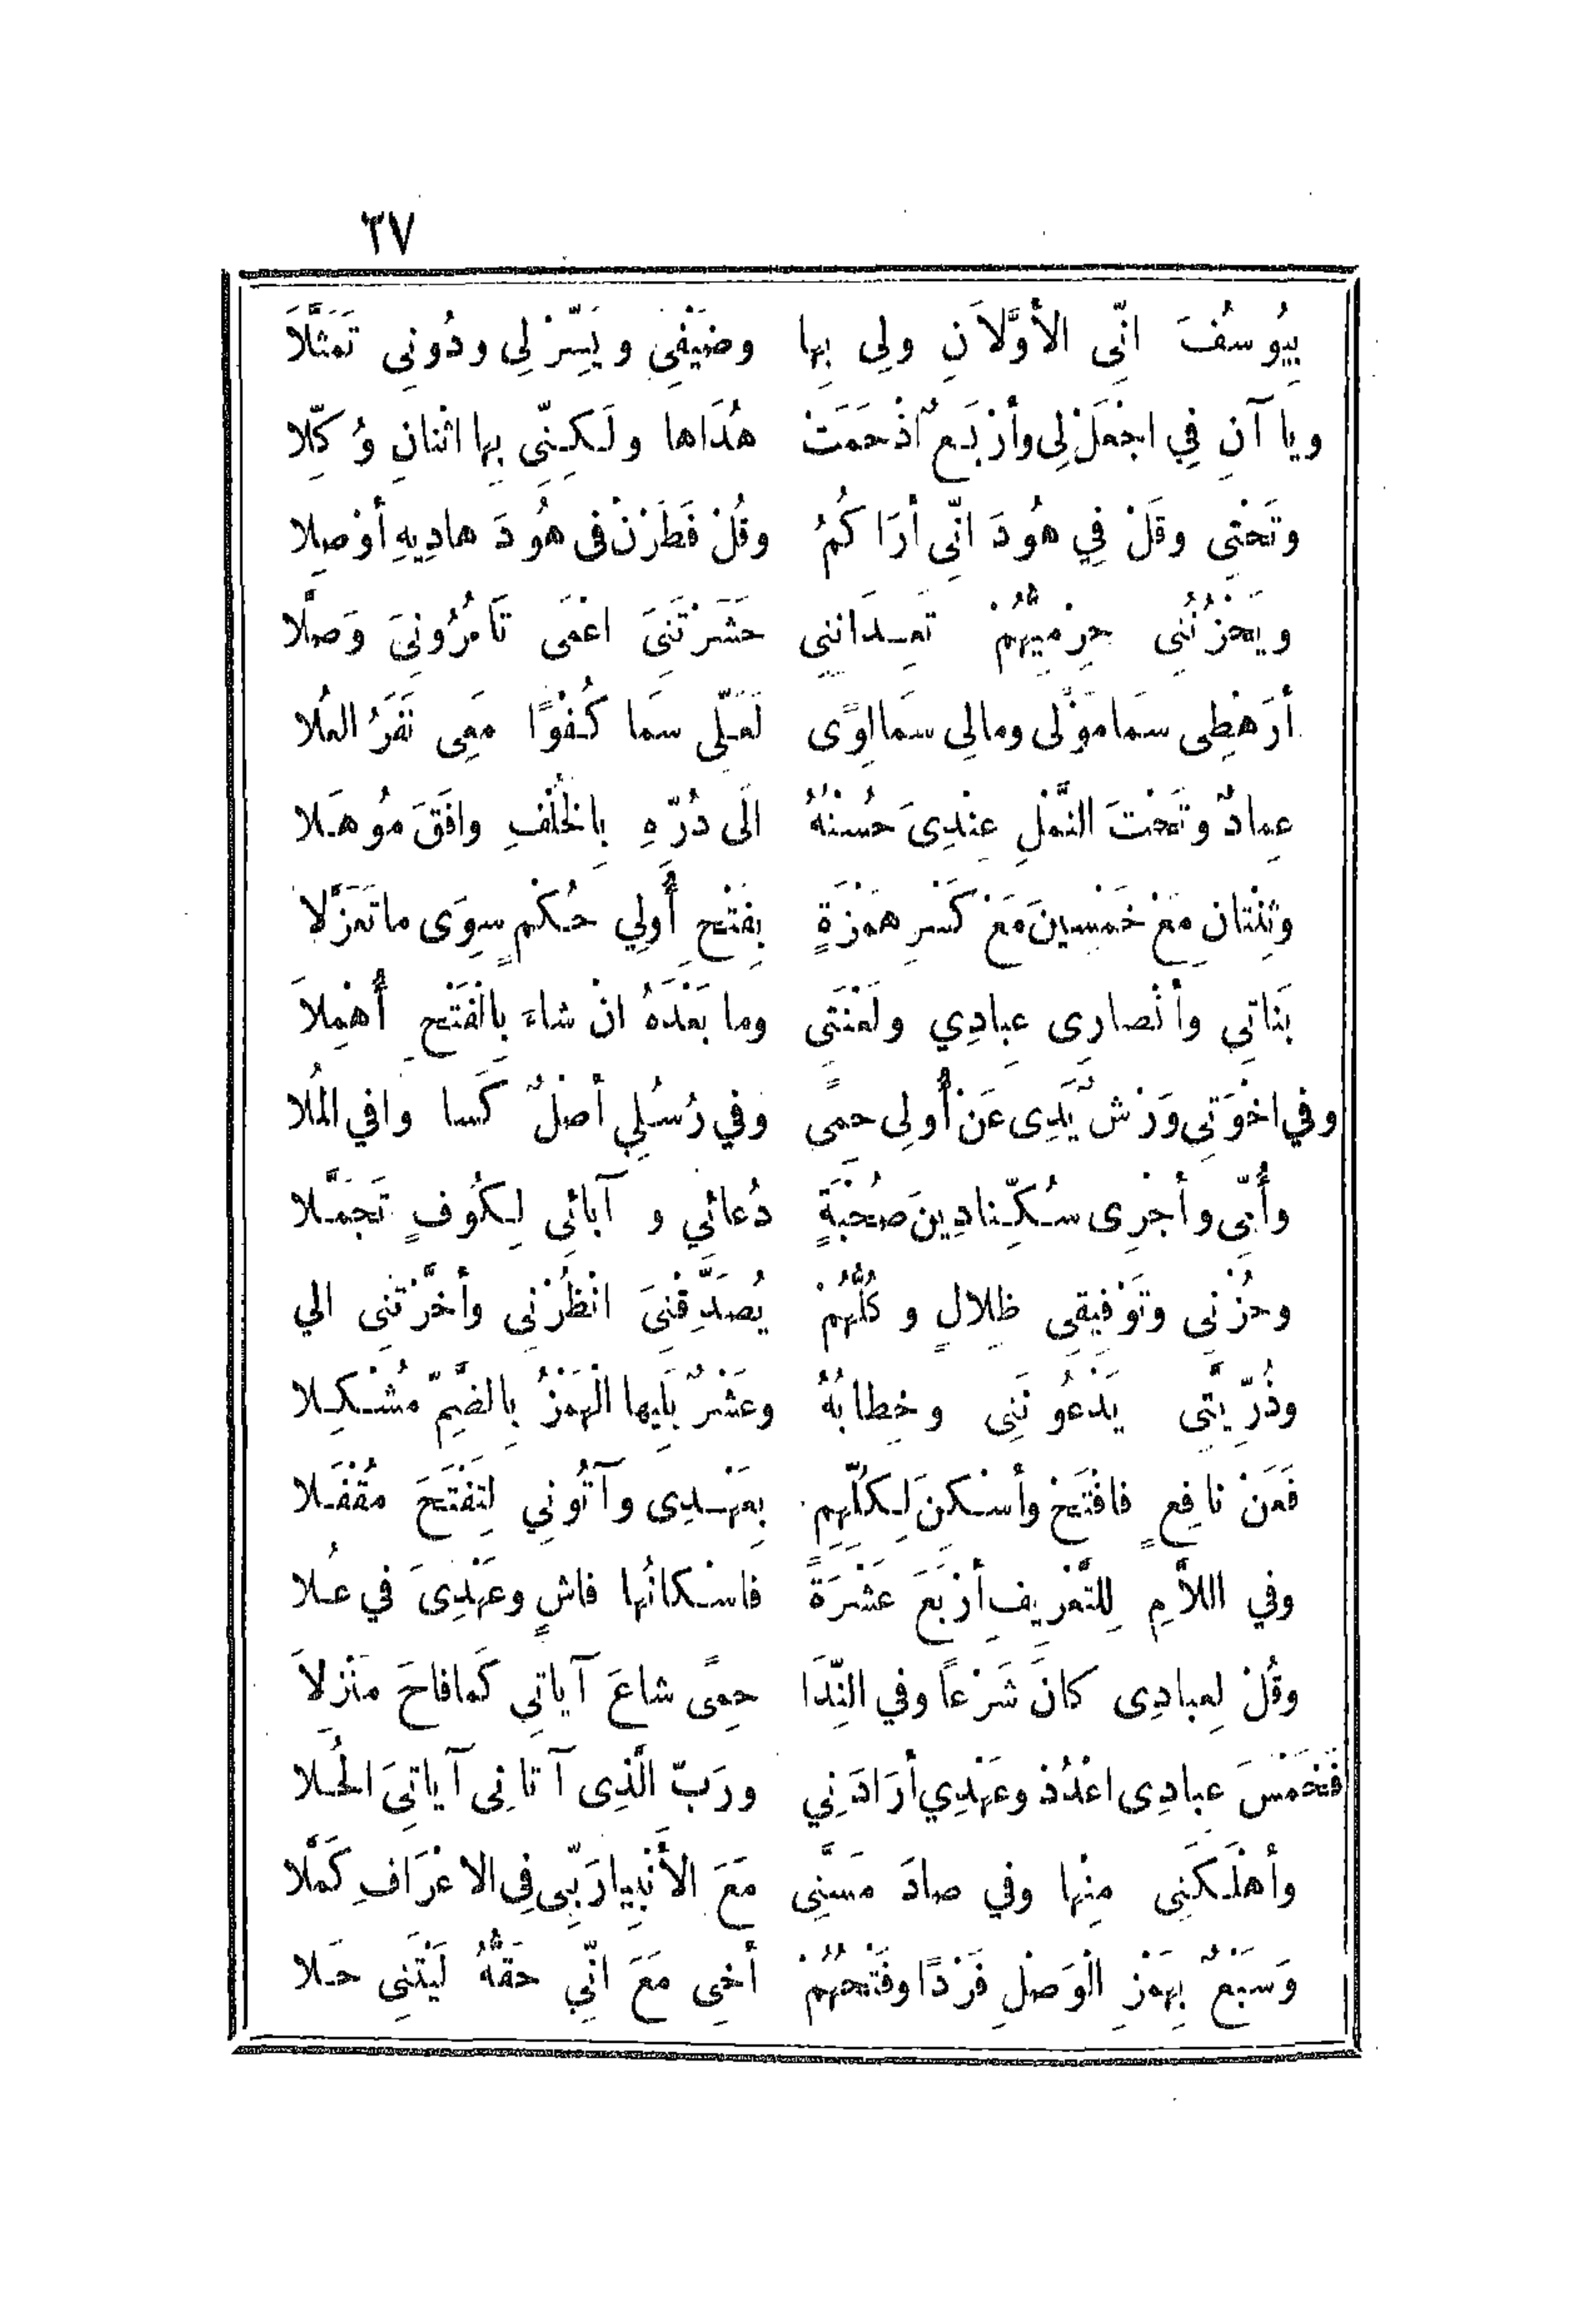 ٣٧
بِيُوسُفَ انِّى الأَوَّلاَنِ ولِى بِها وضَيْفِى ويَسِّرْ لِى ودُونِى تَمَثَّلَا
ويا آنِ فِي اجْعَلْ لِى وأَرْبَعٌ اذْ حَمَتْ هُدَاها ولَكِنِّى بِها اثْنانِ وُكِّلا
وتَحْتِى وقُلْ فِي هُودَ انِّى أَرَاكُمُ وقُلْ فَطَرَنْ فى هُودَ هادِيهِ أَوْصِلا
ويَحْزُنُنِى حِرْمِيُّهُمْ تَعِدَانِنِى حَشَرْتَنِىَ اعْمَى تَأْمُرُونِىَ وَصَّلا
أَرَهْطِى سَمَا مَوْلًى ومالِى سَمَا لِوًى لَعَلِّى سَمَا كُفْوًا مَعِى نَفَرُ العُلا
عِمادٌ وتَحْتَ النَّمْلِ عِنْدِىَ حُسْنُهُ الَى دُرِّهِ بِالخُلْفِ وافَقَ مُوهَلا
وثِنْتانِ مَعْ خَمْسِينَ مَعْ كَسْرِ هَمْزَةٍ بِفَتْحِ أُولِي حُكْمٍ سِوَى ما تَعَزَّلا
بَناتِي وأَنْصارِى عِبادِي ولَعْنَتِى وما بَعْدَهُ انْ شاءَ بِالْفَتْحِ أُهْمِلاَ
وفي اخْوَتِى وَرْشٌ يَدِى عَنْ أُولِى حِمًى وفي رُسُلِي أَصْلٌ كَسا وافي المُلا
وأُمِّى وأَجْرِى سُكِّنا دِينَ صُحْبَةٍ دُعائِي و آبائِي لِكُوفٍ تَجَمَّلا
وحُزْنِي وتَوْفِيقِى ظِلالٍ وكُلُّهُمْ يُصَدِّقْنِىَ انْظُرْنِى وأَخَّرْتَنِى الي
وذُرِّيَّتِى يَدْعُونَنِى وخِطابُهُ وعَشْرٌ يَلِيها الْهَمْزُ بِالضَّمِّ مُشْكِلا
فَعَنْ نافِعٍ فافْتَحْ وأَسْكِنْ لِكُلِّهِمْ بِعَهْدِى وآتُونِي لِتَفْتَحَ مُقْفَلا
وفي اللَّامِ لِلتَّعْرِيفِ أَرْبَعَ عَشْرَةً فاسْكانُها فاشٍ وعَهْدِىَ في عُلا
وقُلْ لِعِبادِى كانَ شَرْعاً وفي النِّدَا حِمًى شاعَ آياتِي كَما فاحَ مَنْزِلاَ
فَخَمْسَ عِبادِى اعْدُدْ وعَهْدِي أَرَادَنِي ورَبِّ الَّذِى آتانِى آياتِىَ الحُلا
وأَهْلَكَنِى مِنْها وفي صادَ مَسَّنِى مَعَ الأَنْبِيا رَبِّى فِى الاعْرَافِ كَمَّلا
وَسَبْعٌ بِهَمْزِ الْوَصْلِ فَرْدًا وفَتْحُهُمْ أَخِى مَعَ انِّي حَقُّهُ لَيْتَنِى حَلا